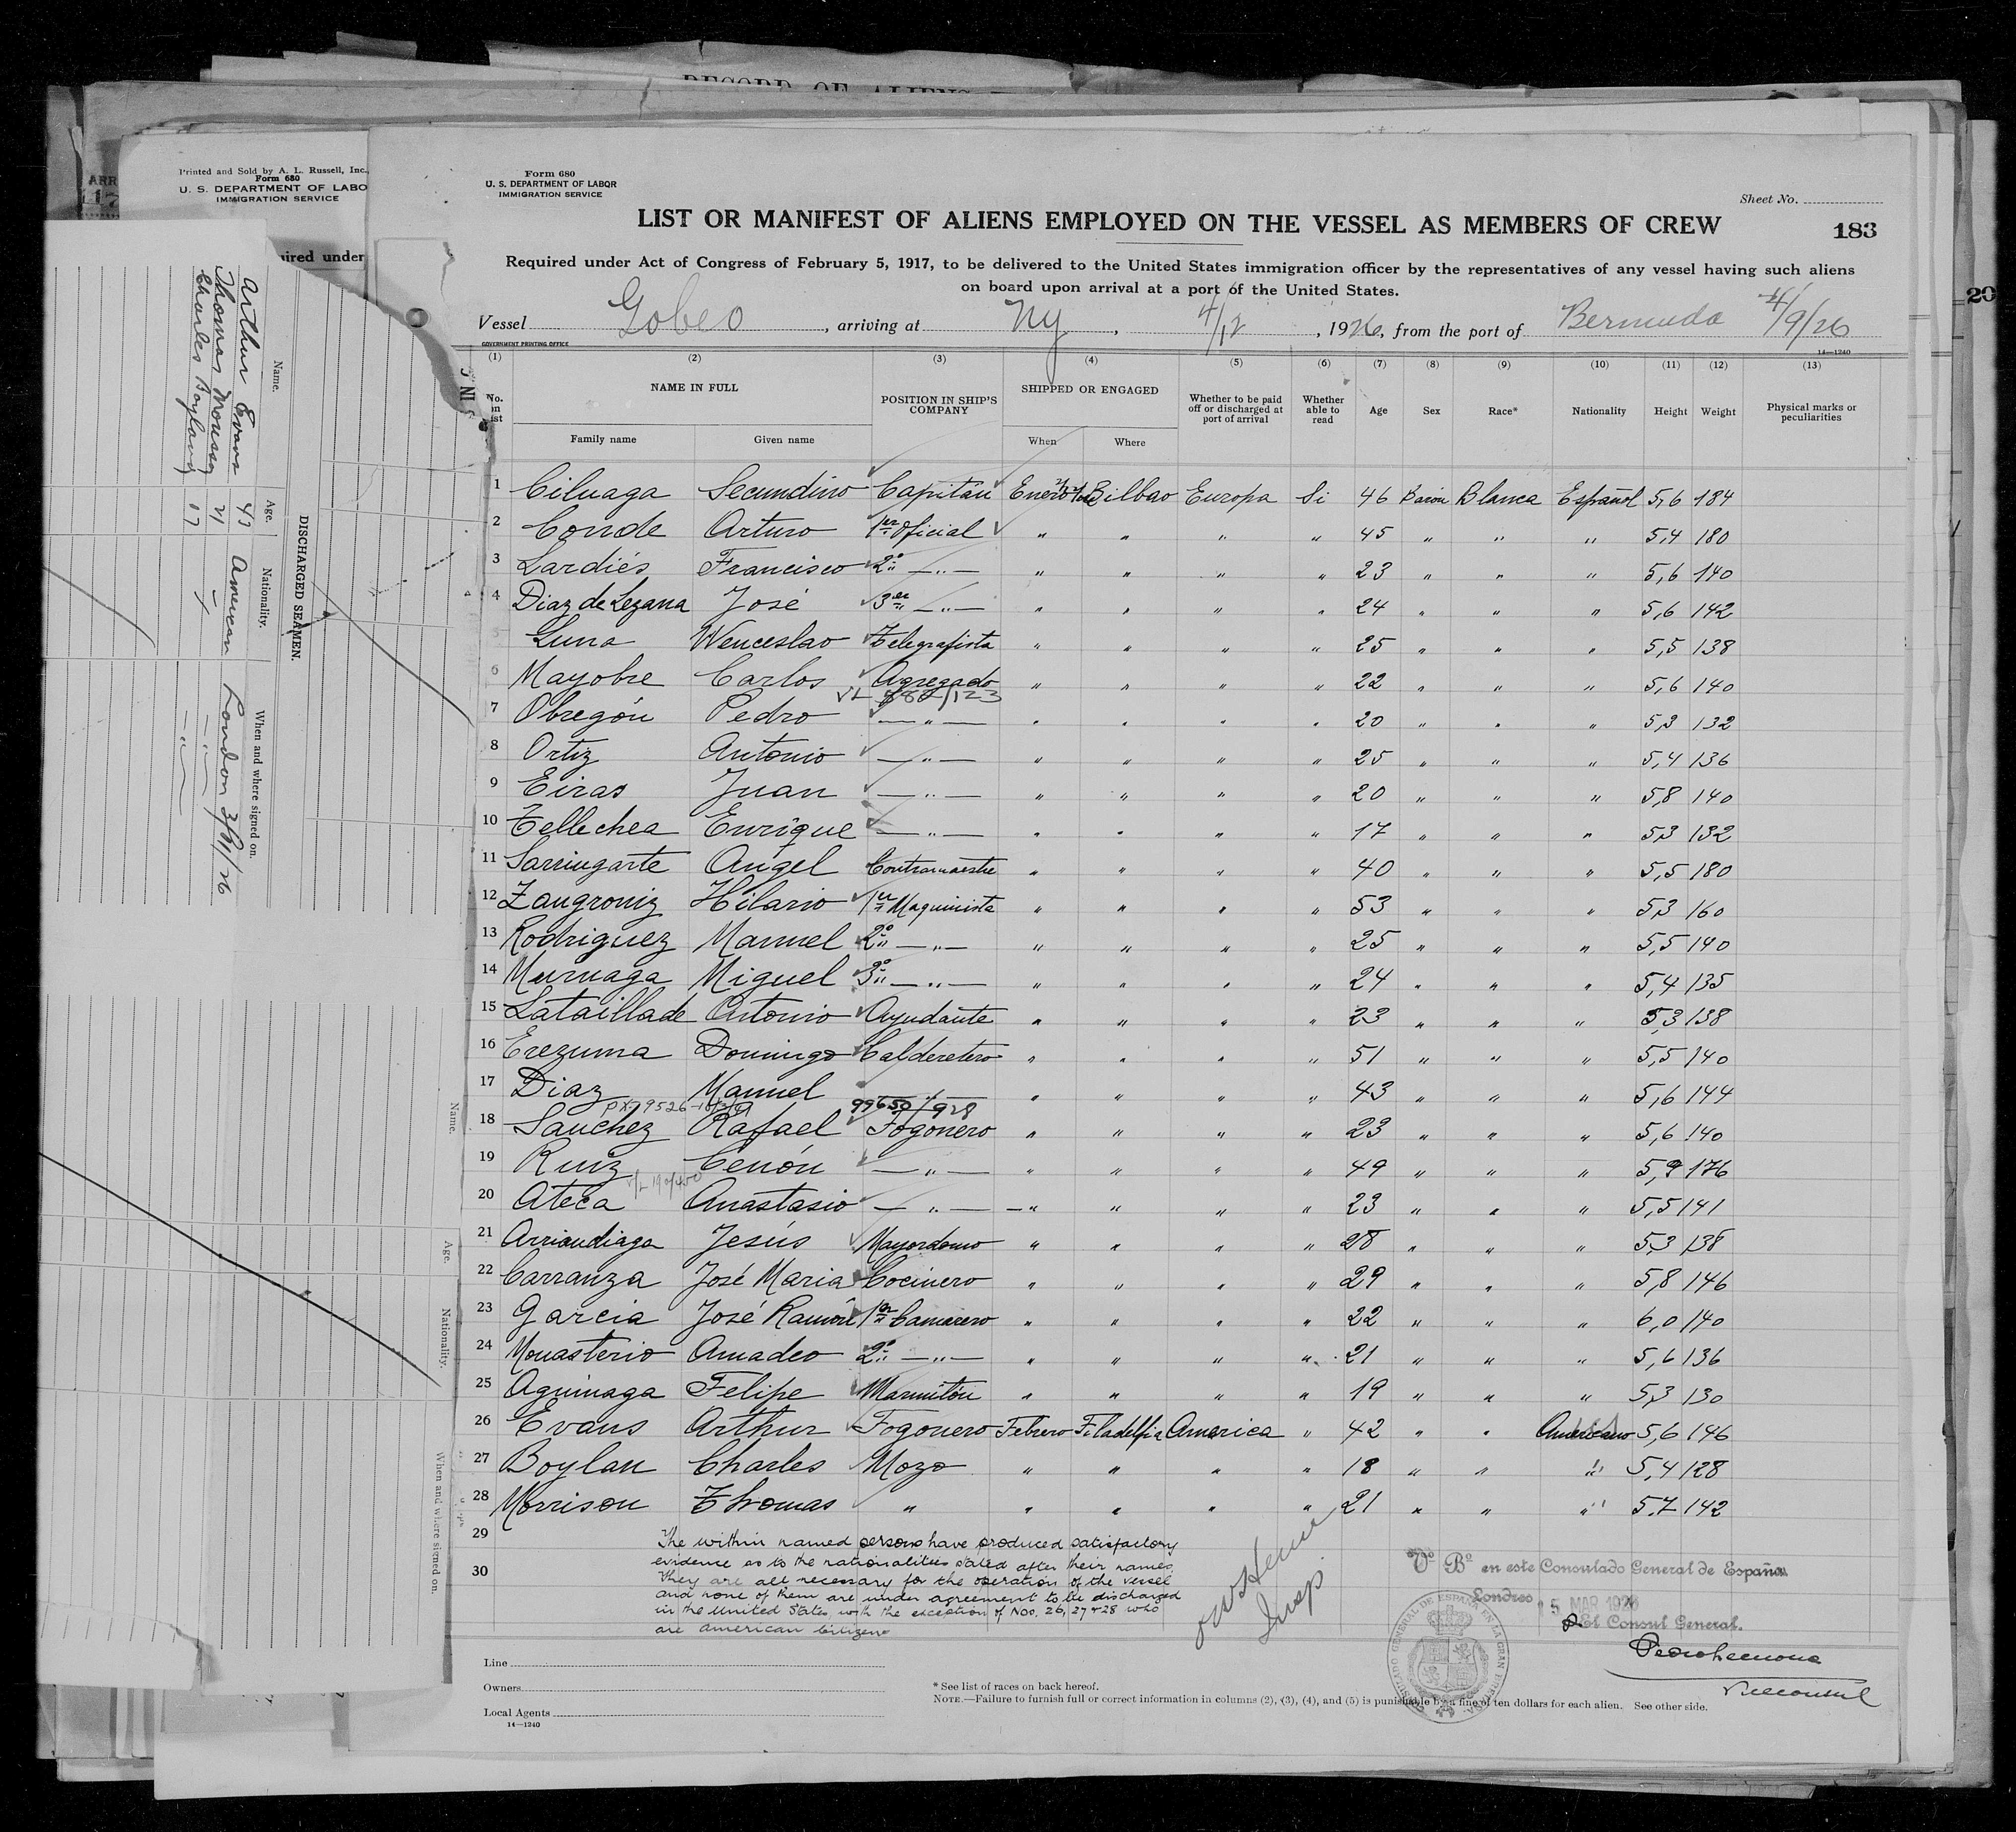 RECORD OF ALIENS
Printed and Sold by A. L. Russell, Inc.,
Form 680
U. S. DEPARTMENT OF LABO
IMMIGRATION SERVICE
ired under
DISCHARGED SEAMEN.
Name. Age. Nationality. When and where signed on.
Arthur Evans 43 American London 3/11/26
Thomas 21 " — " —
Charles Boyland 17 " — " —
Name. Age. Nationality. When and where signed on.
Form 680
U. S. DEPARTMENT OF LABOR
IMMIGRATION SERVICE
Sheet No.
LIST OR MANIFEST OF ALIENS EMPLOYED ON THE VESSEL AS MEMBERS OF CREW
183
20
Required under Act of Congress of February 5, 1917, to be delivered to the United States immigration officer by the representatives of any vessel having such aliens
on board upon arrival at a port of the United States.
Vessel Gobeo, arriving at NY, 4/12, 1926, from the port of Bermuda 4/9/26
GOVERNMENT PRINTING OFFICE
14—1240
(1) (2) (3) (4) (5) (6) (7) (8) (9) (10) (11) (12) (13)
No. on list NAME IN FULL POSITION IN SHIP'S COMPANY SHIPPED OR ENGAGED Whether to be paid off or discharged at port of arrival Whether able to read Age Sex Race* Nationality Height Weight Physical marks or peculiarities
Family name Given name When Where
1 Ciluaga Secundino Capitan Enero Bilbao Europa Si 46 Baron Blanca Español 5,6 184
2 Conde Arturo 1er Oficial " " " " 45 " " " 5,4 180
3 Lardiés Francisco 2º — " — " " " " 23 " " " 5,6 140
4 Diaz de Lezana José 3er — " — " " " " 24 " " " 5,6 142
5 Luna Wenceslao Telegrafista " " " " 25 " " " 5,5 138
6 Mayobre Carlos Agregado " " " " 22 " " " 5,6 140
7 Obregón Pedro — " — " " " " 20 " " " 5,3 132
8 Ortiz Antonio — " — " " " " 25 " " " 5,4 136
9 Eiras Juan — " — " " " " 20 " " " 5,8 140
10 Tellechea Enrique — " — " " " " 17 " " " 5,3 132
11 Sarriugarte Angel Contramaestre " " " " 40 " " " 5,5 180
12 Zangroniz Hilario 1er Maquinista " " " " 53 " " " 5,3 160
13 Rodriguez Manuel 2º — " — " " " " 25 " " " 5,5 140
14 Muruaga Miguel 3º — " — " " " " 24 " " " 5,4 135
15 Lataillade Antonio Ayudante " " " " 23 " " " 5,3 138
16 Erezuma Domingo Calderetero " " " " 51 " " " 5,5 140
17 Diaz Manuel " " " " 43 " " " 5,6 144
99650/928
18 Sanchez Rafael Fogonero " " " " 23 " " " 5,6 140
19 Ruiz Cenón — " — " " " " 49 " " " 5,9 176
20 Ateca Anastasio — " — " " " " 23 " " " 5,5 141
21 Arriandiaga Jesús Mayordomo " " " " 28 " " " 5,3 138
22 Carranza José Maria Cocinero " " " " 29 " " " 5,8 146
23 Garcia José Ramón 1er Camarero " " " " 22 " " " 6,0 140
24 Monasterio Amadeo 2º — " — " " " " 21 " " " 5,6 136
25 Aguinaga Felipe Marmitón " " " " 19 " " " 5,3 130
26 Evans Arthur Fogonero Febrero Filadelfia America " 42 " " Americano 5,6 146
27 Boylan Charles Mozo " " " " 18 " " " 5,4 128
28 Morrison Thomas " " " " " 21 " " " 5.7 142
29
30
The within named persons have produced satisfactory
evidence as to the nationalities stated after their names
They are all necessary for the operation of the vessel
and none of them are under agreement to be discharged
in the United States with the exception of Nos. 26, 27 + 28 who
are American Citizens
Insp.
Vº Bº en este Consulado General de España
Londres 5 MAR 1926
El Consul General.
Viceconsul
CONSULADO GENERAL DE ESPAÑA EN LA GRAN BRETAÑA
Line
Owners
Local Agents
14—1240
* See list of races on back hereof.
NOTE.—Failure to furnish full or correct information in columns (2), (3), (4), and (5) is punishable by a fine of ten dollars for each alien. See other side.